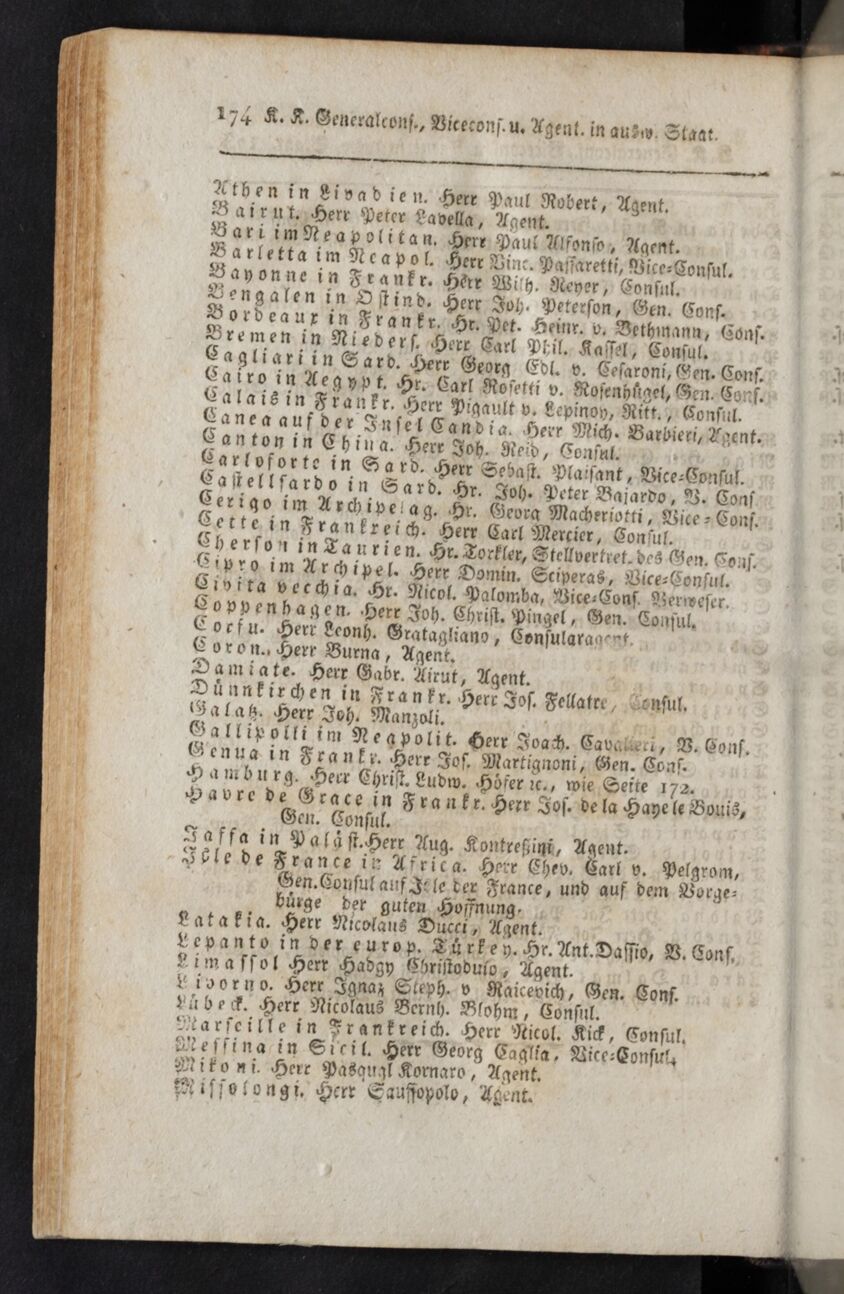 174 K. K. Generalcons., Viceconf. u. Agent. in ausw. Staat.
Athen in Livadien. Herr Paul Robert, Agent.
Bairut. Herr Peter Lavella, Agent.
Bari im Neapolitan. Herr Paul Alfonso, Agent.
Barletta im Neapol. Herr Vinc. Passaretti, Vice-Consul.
Bayonne in Frankr. Herr Wilh. Meyer, Consul.
Bengalen in Ostind. Herr Joh. Peterson, Gen. Cons.
Bordeaux in Frankr. Hr. Pet. Heinr. v. Bethmann, Cons.
Bremen in Nieders. Herr Carl Phil. Kassel, Consul.
Cagliari in Sard. Herr Georg Edl. v. Cesaroni, Gen. Cons.
Cairo in Aegypt. Hr. Carl Rosetti v. Rosenhügel, Gen. Cons.
Calais in Frankr. Herr Pigault v. Lepinoy, Ritt., Consul.
Canea auf der Insel Candia. Herr Mich. Barbieri, Agent.
Canton in China. Herr Joh. Reid, Consul.
Carloforte in Sard. Herr Sebast. Plaisant, Vice-Consul.
Castellsardo in Sard. Hr. Joh. Peter Bajardo, V. Cons
Cerigo im Archipelag. Hr. Georg Macheriotti, Vice-Cons.
Cette in Frankreich. Herr Carl Mercier, Consul.
Cherson in Taurien. Hr. Torkler, Stellvertret. des Gen. Cons.
Cipro im Archipel. Herr Domin. Sciperas, Vice-Consul.
Civita vecchia. Hr. Nicol. Palomba, Vice-Cons. Verweser.
Coppenhagen. Herr Joh. Christ. Pingel, Gen. Consul.
Corfu. Herr Leonh. Gratagliano, Consularagent.
Coron. Herr Burna, Agent.
Damiate. Herr Gabr. Airut, Agent.
Dünnkirchen in Frankr. Herr Jos. Fellatre, Consul.
Galatz. Herr Joh. Manzoli.
Gallipolli im Neapolit. Herr Joach. Cavalieri, V. Cons.
Genua in Frankr. Herr Jos. Martignoni, Gen. Cons.
Hamburg. Herr Christ. Ludw. Höfer ꝛc., wie Seite 172.
Havre de Grace in Frankr. Herr Jos. de la Haye le Bouis,
Gen. Consul.
Jaffa in Paläst. Herr Aug. Kontreßini, Agent.
Isle de France in Africa. Herr Chev. Carl v. Pelgrom,
Gen. Consul auf Isle der France, und auf dem Vorge-
bürge der guten Hoffnung.
Latakia. Herr Nicolaus Ducci, Agent.
Lepanto in der europ. Türkey. Hr. Ant. Dassio, V. Cons.
Limassol Herr Hadgy Christodulo, Agent.
Livorno. Herr Ignaz Steph. v Raicevich, Gen. Cons.
Lübeck. Herr Nicolaus Bernh. Blohm, Consul.
Marseille in Frankreich. Herr Nicol. Kick, Consul.
Messina in Sicil. Herr Georg Caglia, Vice-Consul.
Mikoni. Herr Pasqugl Kornaro, Agent.
Missolongi. Herr Saussopolo, Agent.